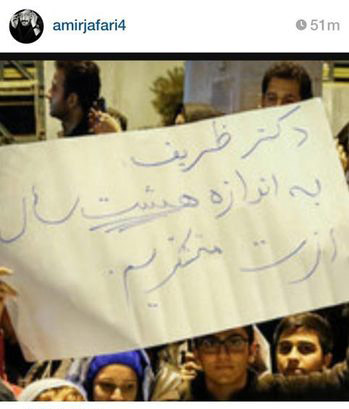 amirjafari4
51m
دکتر ظریف
به اندازه هشت سال
ازت متشکریم.